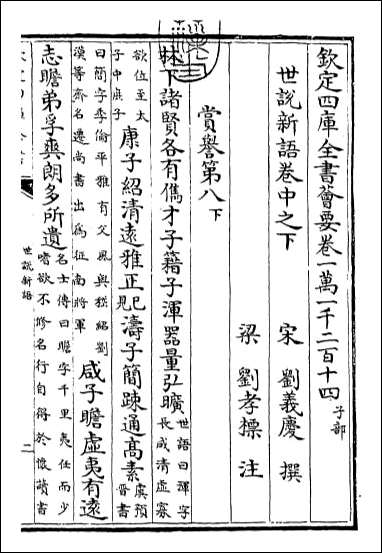 欽定四庫全書薈要卷一萬一千二百十四 子部
世說新語卷中之下
宋 劉義慶 撰
梁 劉孝標 注
賞譽第八下
林下諸賢各有儁才子籍子渾器量弘曠 世語曰渾字長成清虛寡
欲位至太子中庶子 康子紹清遠雅正 已見 濤子簡疎通高素 虞預晉書
曰簡字季倫平雅有父風與嵇紹劉漠等齊名遷尚書出為征南將軍 咸子瞻虛夷有遠
志瞻弟孚爽朗多所遺 名士傳曰瞻字千里夷任而少嗜欲不修名行自得於懷讀書
世說新語